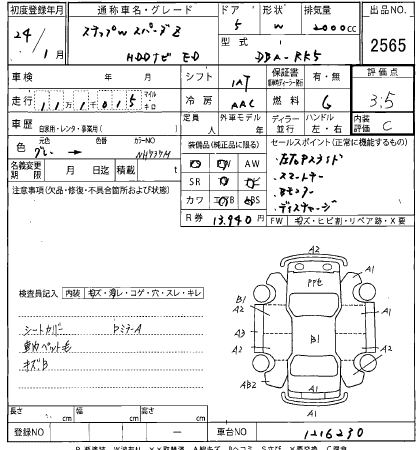 初度登録年月 通称車名・グレード ドア 形状 排気量 出品NO
24/1月 ステップW スパーダZ 5 W 2000cc
HDDナビ ED 型式 DBA-RK5 2565
車検 年 月 シフト IAT 保証書 有・無 評価点
走行 111,015 マイル キロ 冷房 AAC 燃料 G 3.5
車歴 自家用・レンタ・事業用( ) 定員 人 外車モデル 年 ディーラー 並行 ハンドル 左・右 内装評価 C
色 元色 グレー → 色替 カラーNO NH737M
装備品(純正品に限る) セールスポイント(正常に機能するもの)
PW AW
SR
カワ ABS
・スマートキー
・Bモニター
名義変更期限 月 日迄 積載 t
R券 13,940円
注意事項(欠品・修復・不具合箇所および状態)
FW キズ・ヒビ割・リペア跡・X要
A2
A1
B1
A2
A3
A2
B1
A1
A2
A2
AB2
A1
A1
検査員記入 内装 キズ・汚レ・コゲ・穴・スレ・キレ
シートカバー
車内ペット毛
キズB
長さ cm 幅 cm 高さ cm
登録NO 車台NO 1216230